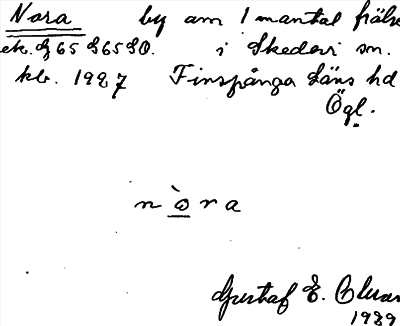 Nora by om 1 mantal frälse
ek. 865 8650. i Skedevi sn.
kb. 1927 Finspånga läns hd
Ögl.
n ò r a
Gustaf E.
1929